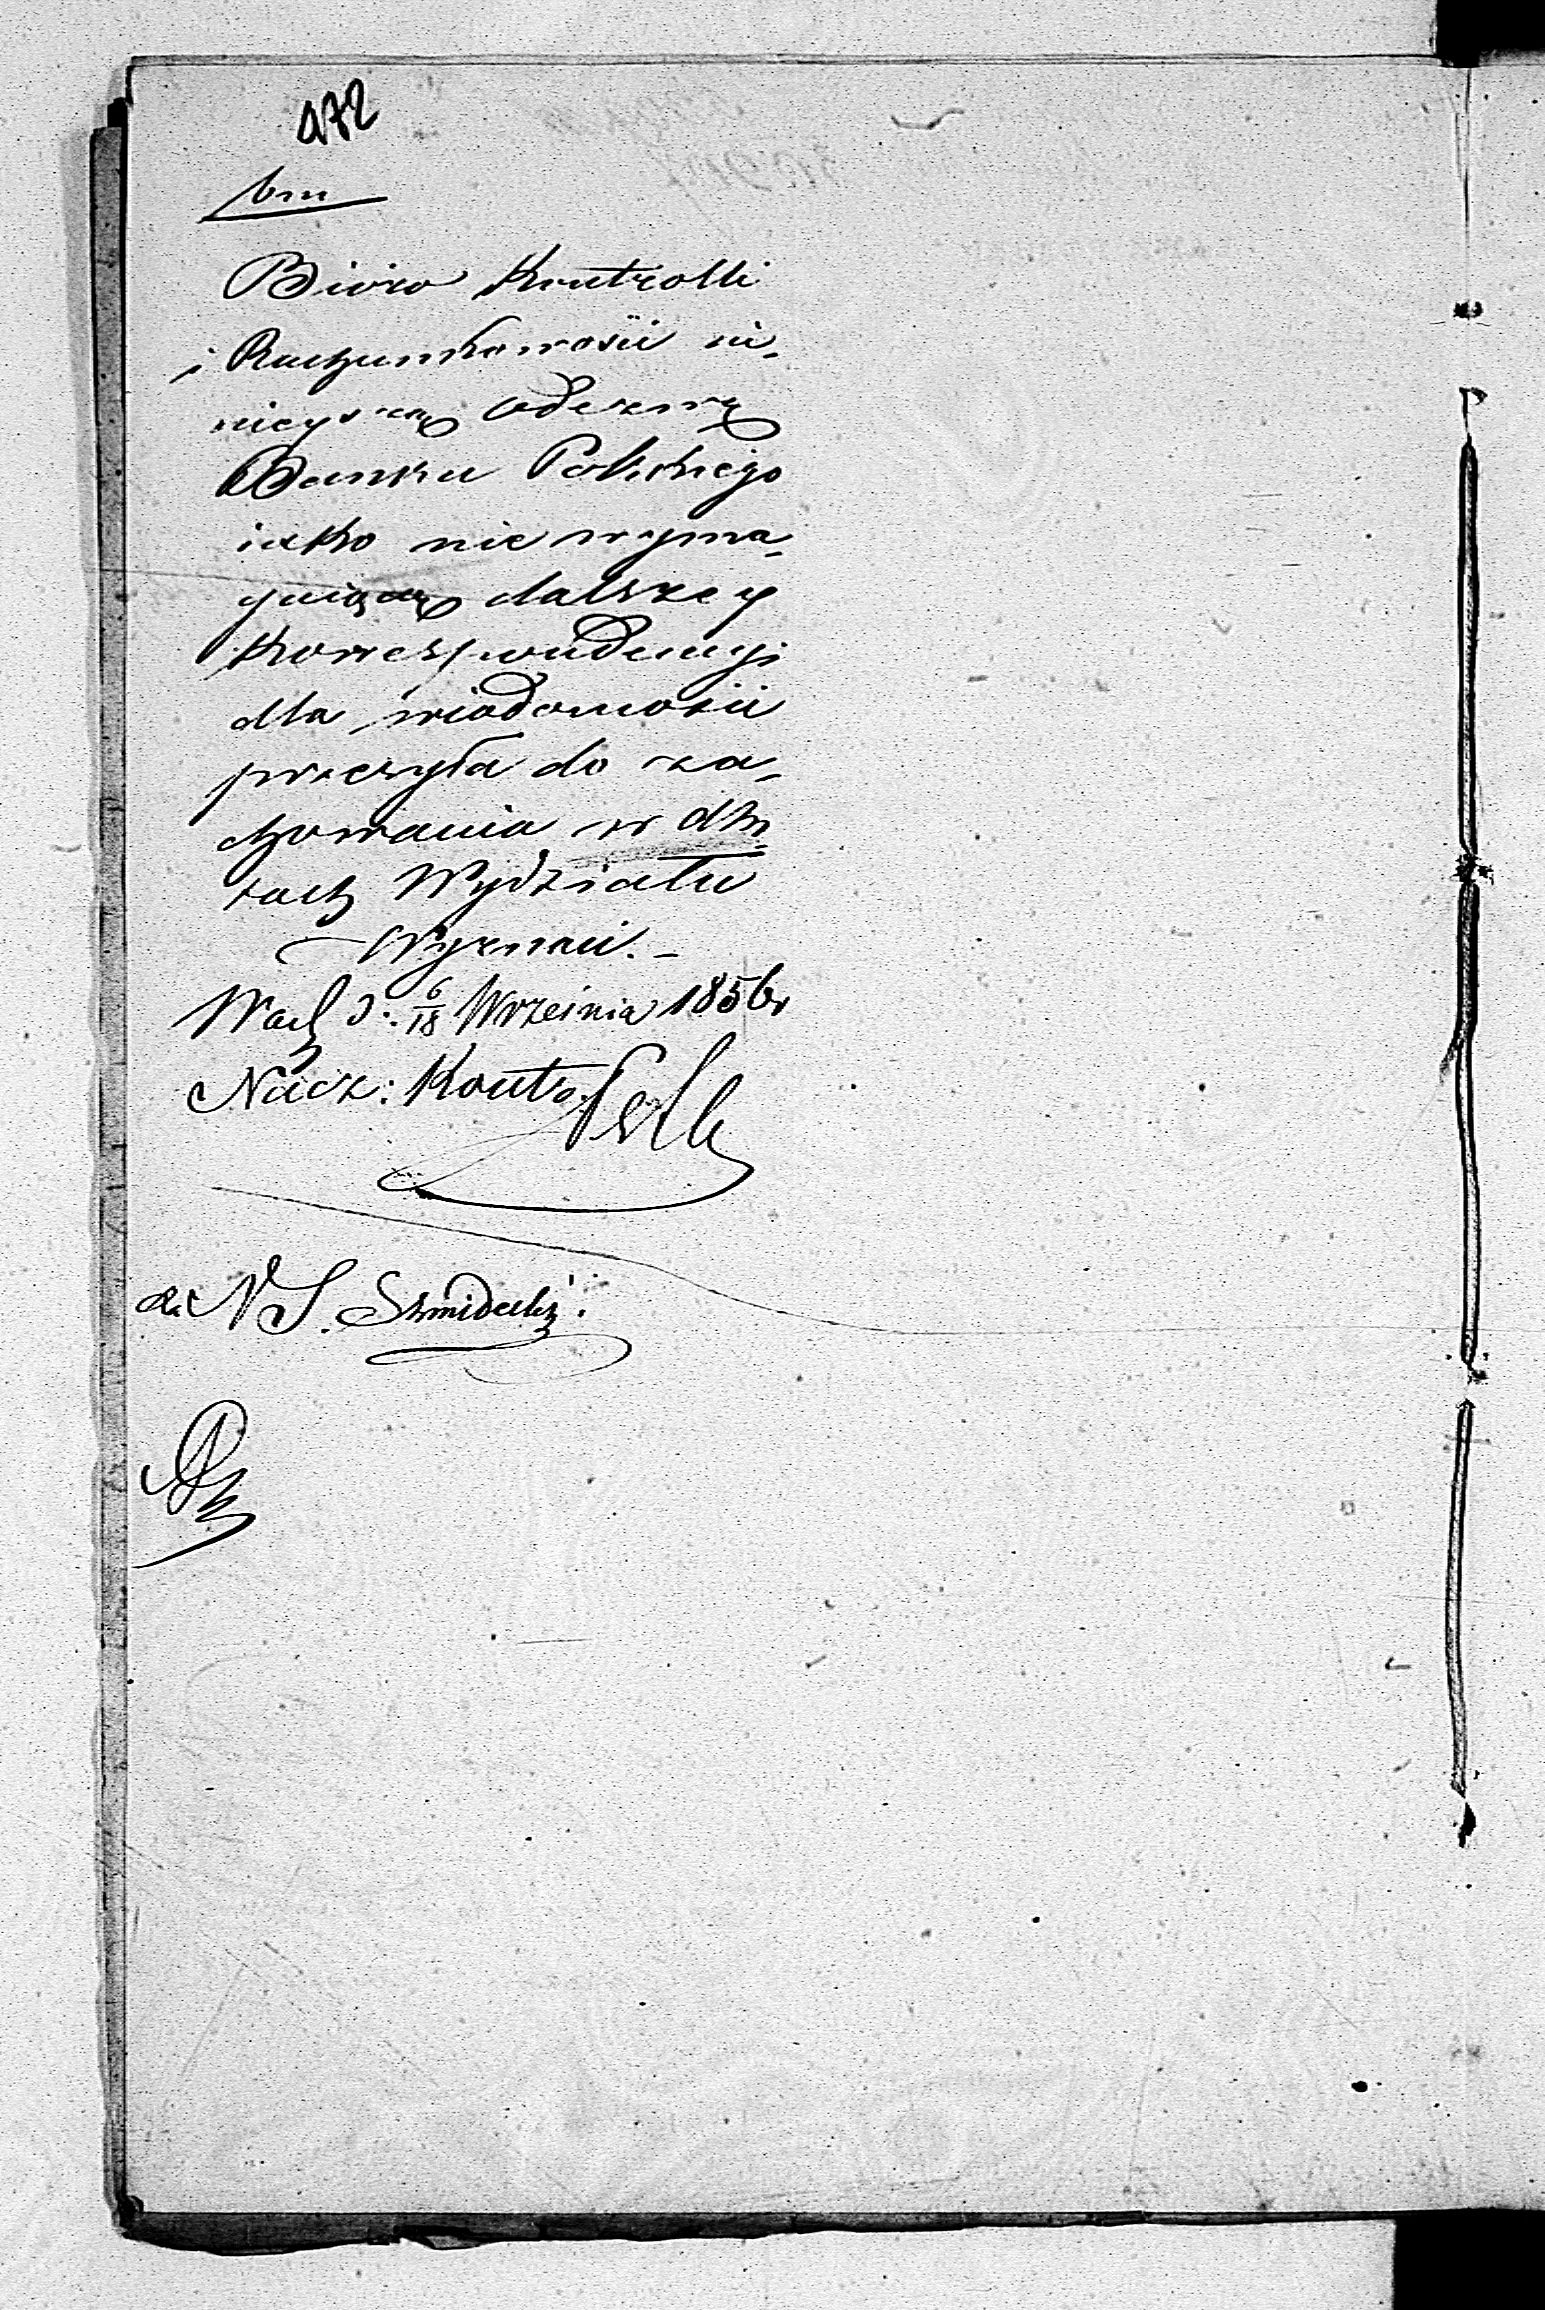 472
bm
Bióro Kontrolli
i Rachunkowości ni-
nieyszą Odezwę
Banku Polskiego
iako nie wyma-
gaiącą dalszey
korrespondencyi
dla wiadomości
przesyła do za-
chowania w akt
tach Wydziału
Wyznań.-
War d: 6/18 Września 1856 r
Nacz: Kontr.
N S. Szmidecki.